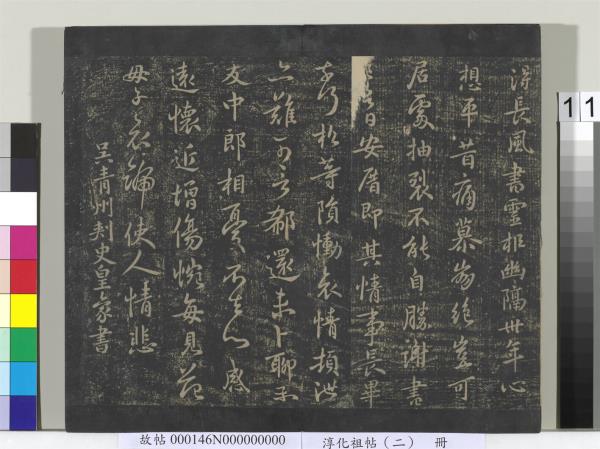 得長風書靈柩幽隔卅年心
想平昔痛慕崩絕豈可
居處抽裂不能自勝謝書
日安厝即其情事長畢
松等隕慟哀情損
難可言郗還未卜聊示
友中郎相憂不去心感
遠懷近增傷惋每見范
母子哀號使人情悲
吳青州刺史皇象書
11
故帖 000146N000000000 淳化祖帖（二） 冊